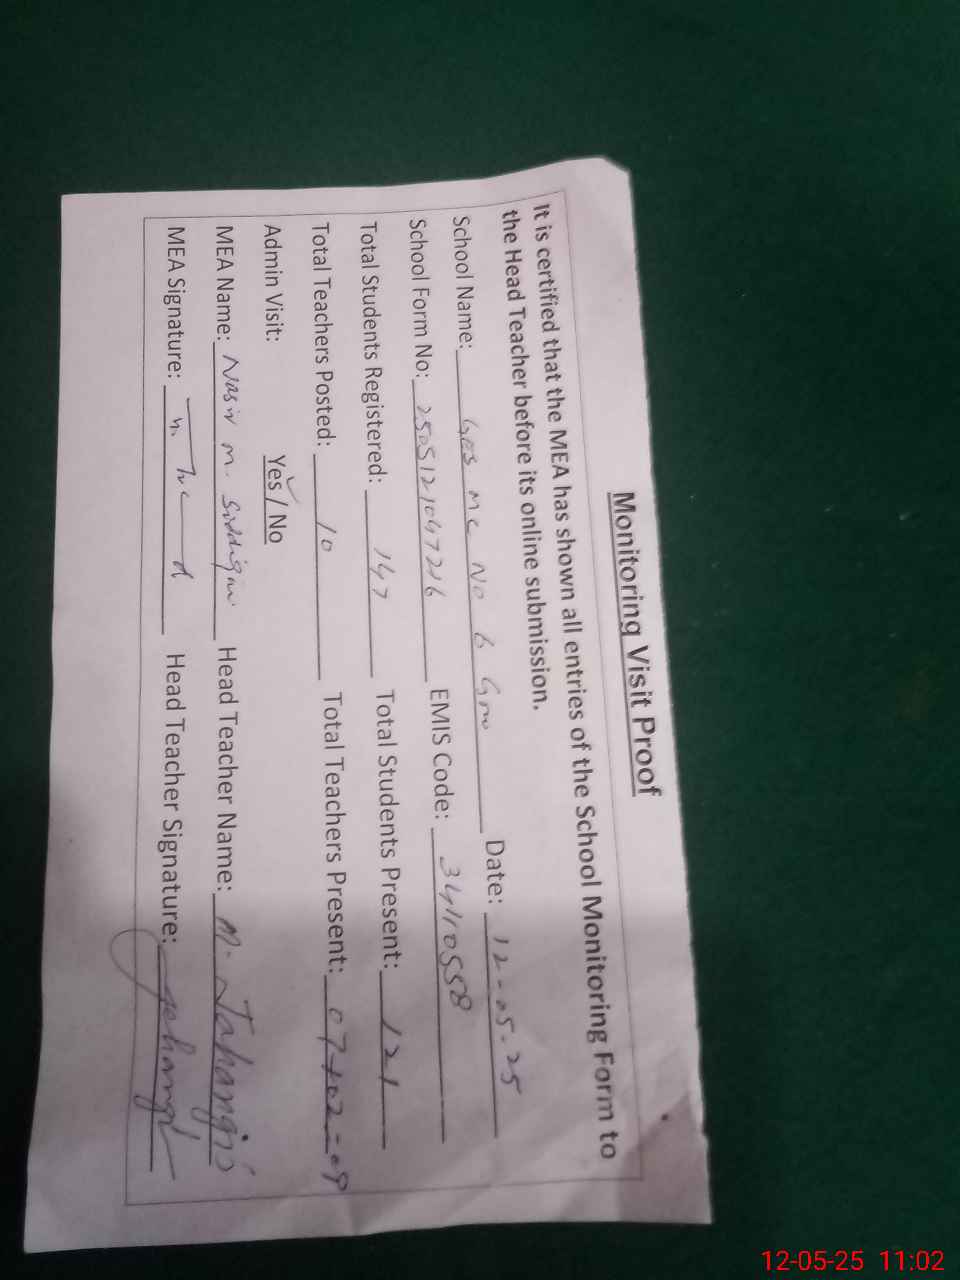 Monitoring Visit Proof
It is certified that the MEA has shown all entries of the School Monitoring Form to
the Head Teacher before its online submission.
School Name: MC No 6 Date: 12-05-25
School Form No: EMIS Code: 34110558
Total Students Registered: 147 Total Students Present: 121
Total Teachers Posted: 10 Total Teachers Present: 07+02=09
Admin Visit: Yes / No
MEA Name: Nasir M. Siddiqui Head Teacher Name: M. Jahangir
MEA Signature: Head Teacher Signature: Jehangir
12-05-25 11:02